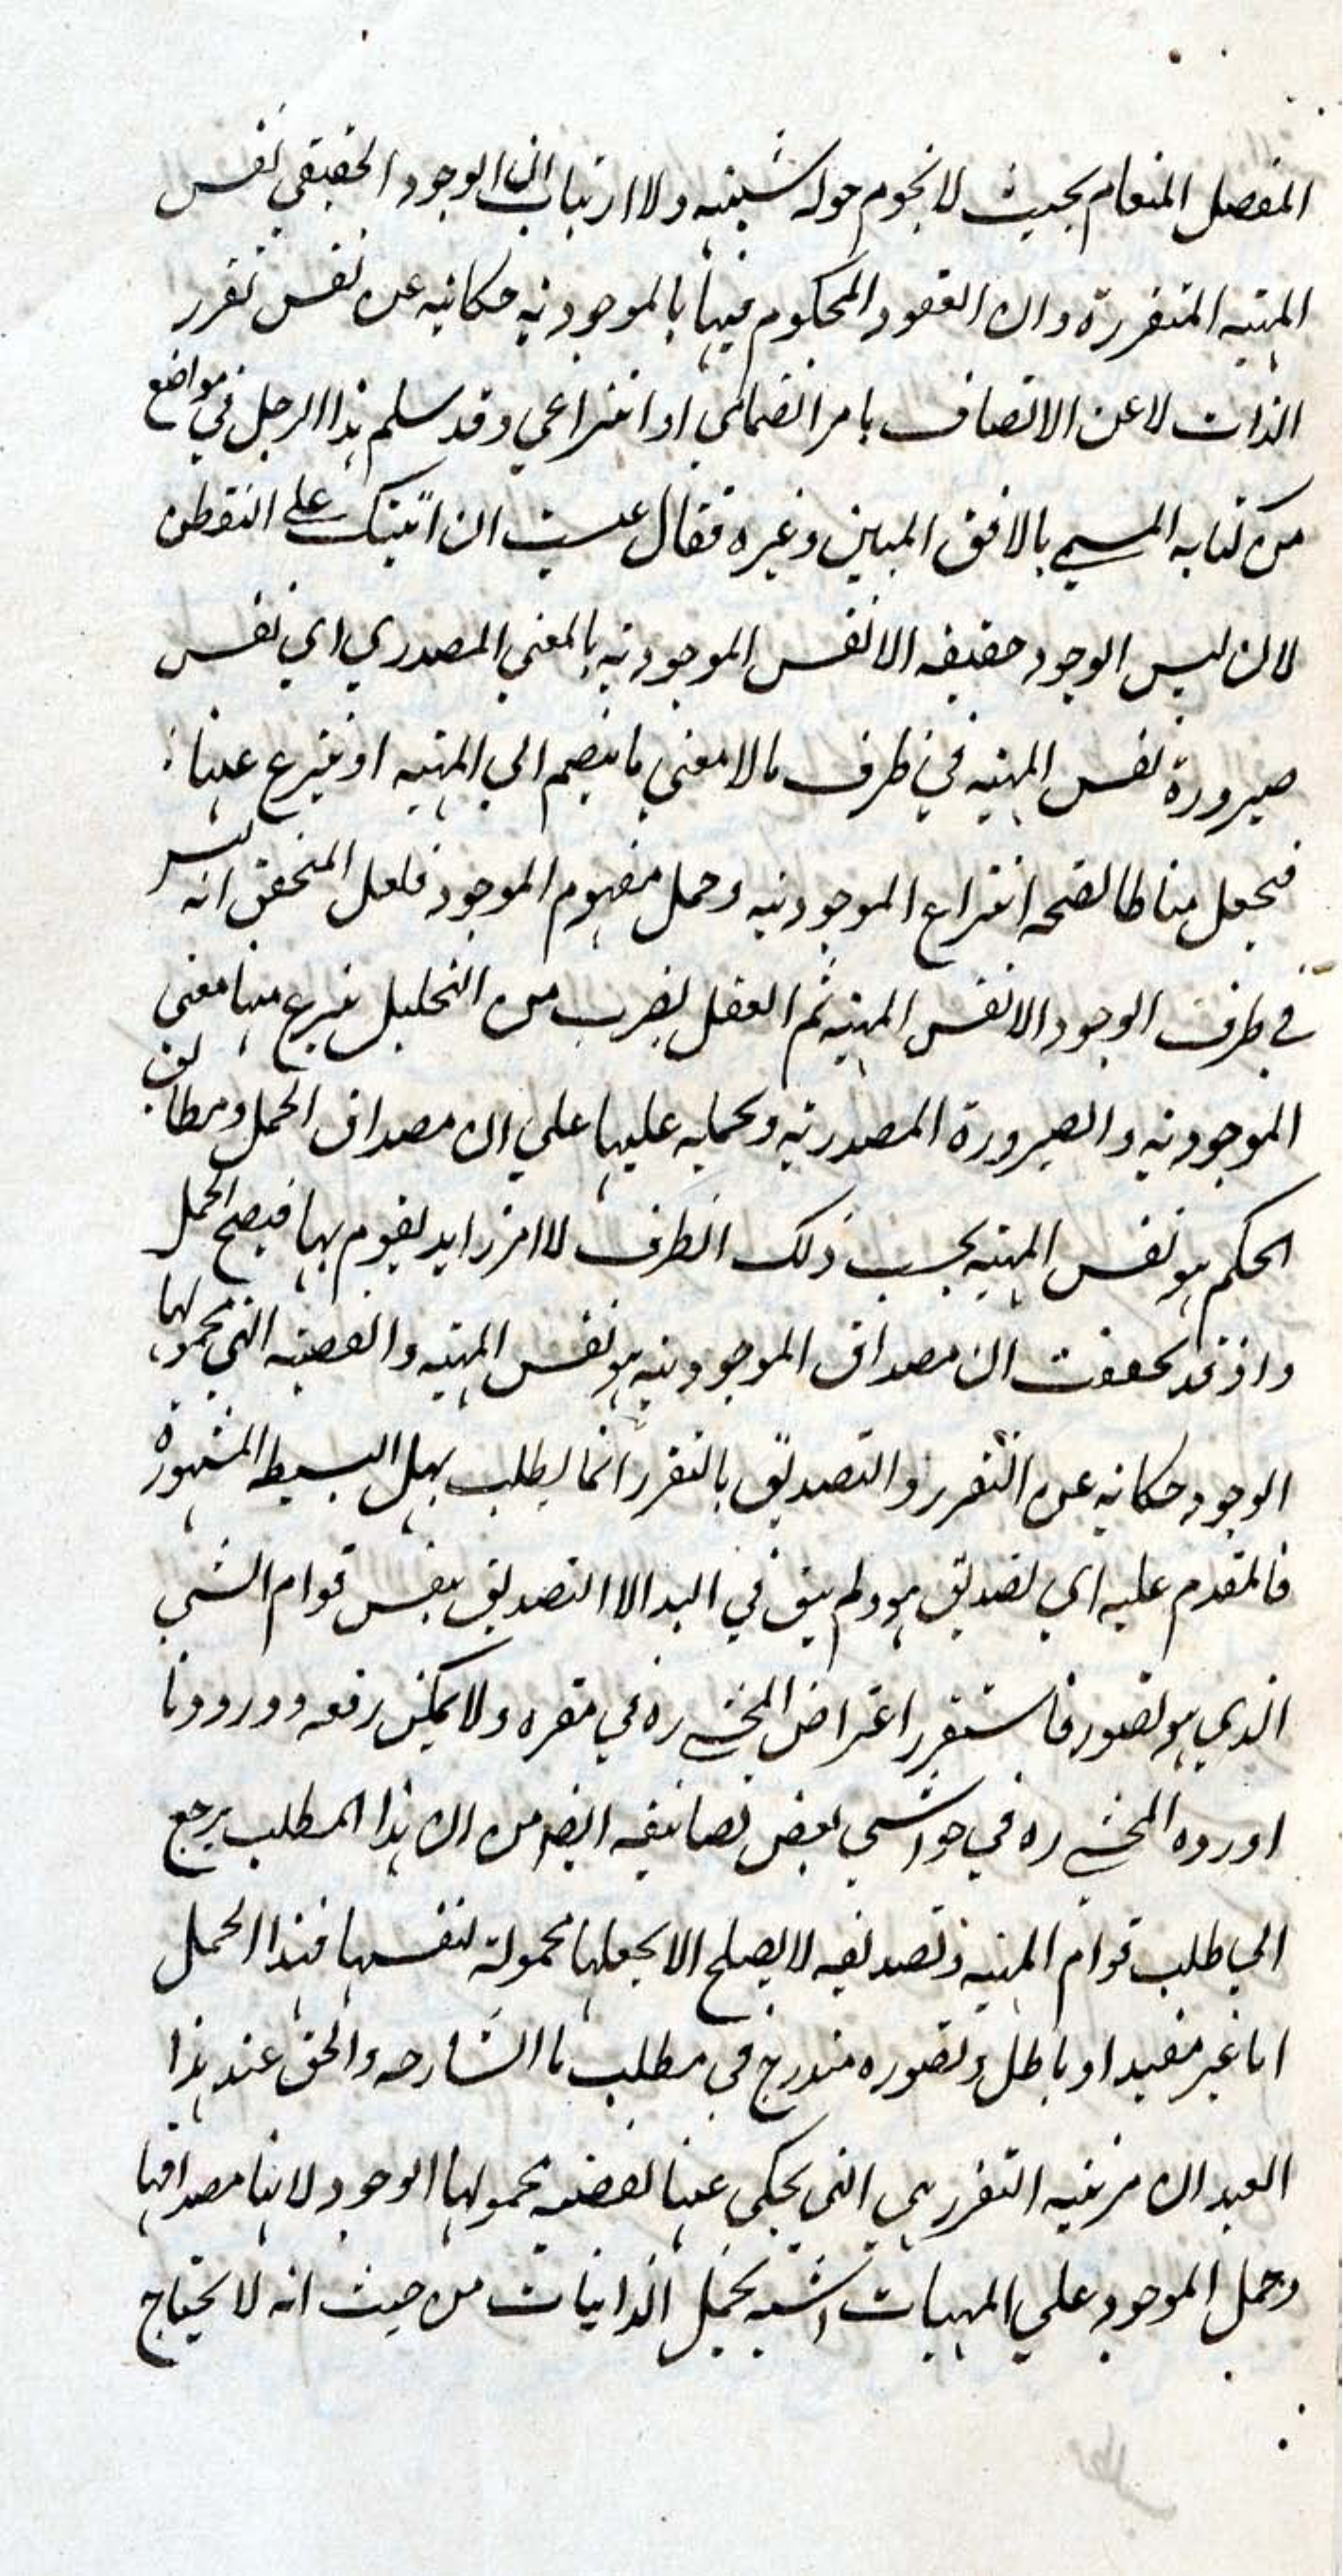 المفصل المنعام بحيث لا يحوم حوله شبيهه ولا ارتياب ان الوجود الحقيقي نفس
المهيه المتقررة وان العقود المحكوم فيها بالموجوديه حكايه عن نفس تقرر
الذات لا عن الاتصاف بامر انضمامي او انتزاعي وقد سلم هذا الرجل في مواضع
من كتابه المسمي بالافق المبين وغيره فقال عسيت ان اثبتك علي التفطن
لان ليس الوجود حقيقه الا نفس الموجوديه بالمعني المصدري اي نفس
صيرورة نفس المهيه في ظرف ما لا معني ما ينضم الي المهيه او ينتزع عنها
فيجعل مناطا لصحه انتزاع الموجوديه وحمل مفهوم الموجود فلعل المتحقق انه ليس
في ظرف الوجود الا نفس المهيه ثم العقل بضرب من التحليل ينتزع منها معني
الموجوديه والصيرورة المصدريه ويحمله عليها علي ان مصداق الحمل ومطابق
الحكم هو نفس المهيه بحسب ذلك الظرف لا امر زايد يقوم بها فيصح الحمل
واذ قد تحققت ان مصداق الموجوديه هو نفس المهيه والقضيه التي محمولها
الوجود حكايه عن التقرر والتصديق بالتقرر انما يطلب بهل البسيطه المشهورة
فالمتقدم عليه اي تصديق هو ولم يبق في اليد الا التصديق بنفس قوام الشي
الذي هو تصور فاستقر اعتراض المحشي ره في مقره ولا يمكن رفعه وورود ما
اورده المحشي ره في حواشي بعض تصانيفه ايضا من ان هذا المطلب يرجع
الي طلب قوام المهيه وتصديقه لا يصلح الا بجعلها محمولة لنفسها فهذا الحمل
اما غير مفيد او باطل وتصوره مندرج في مطلب ما الشارحه والحق عند هذا
العبد ان مرتبه التقرر هي التي يحكي عنها بقضيه محمولها الوجود لانها مصداقها
وحمل الموجود علي المهيات اشبه بحمل الذاتيات من حيث انه لا يحتاج